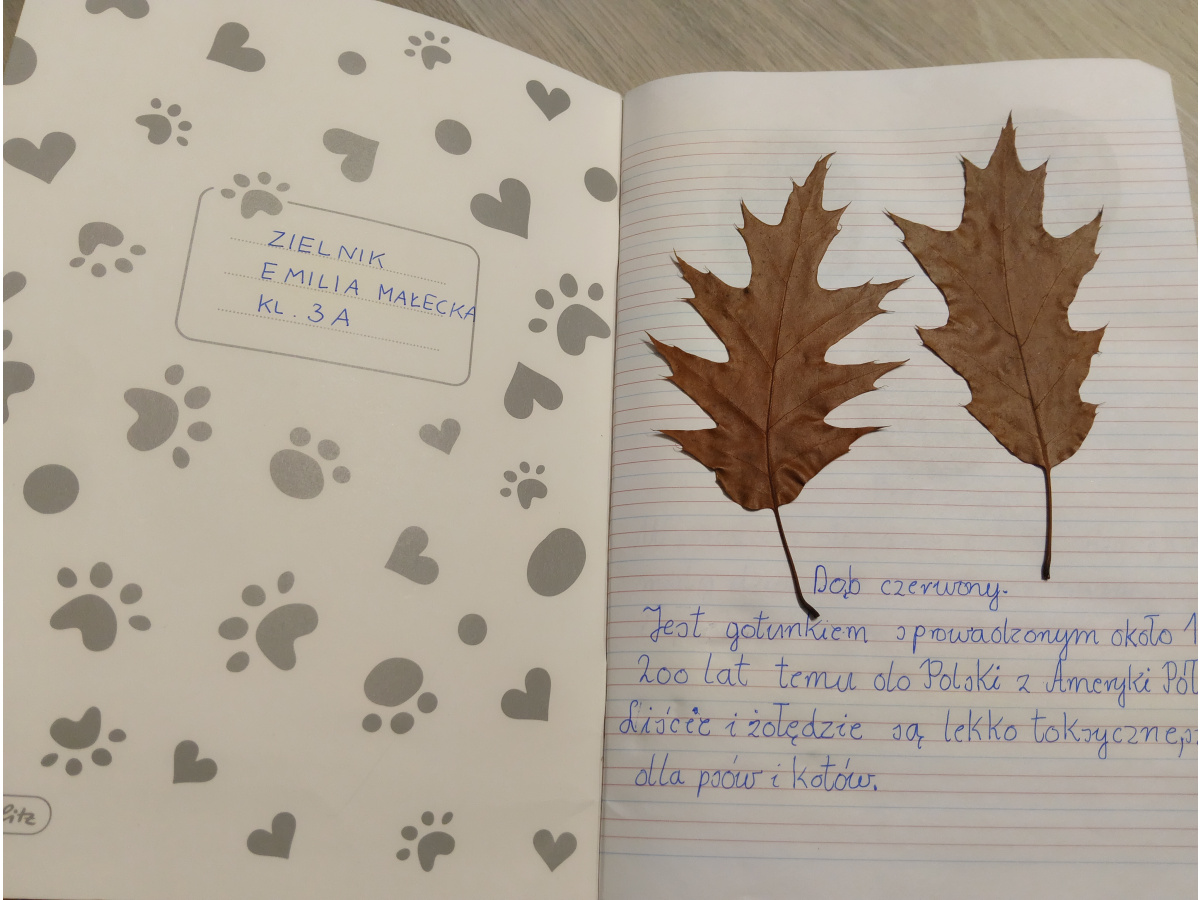 ZIELNIK
EMILIA MAŁECKA
KL. 3A
litz
Dąb czerwony.
Jest gatunkiem sprowadzonym około 1
200 lat temu do Polski z Ameryki Pół
Liście i żołędzie są lekko toksyczne,
dla psów i kotów.